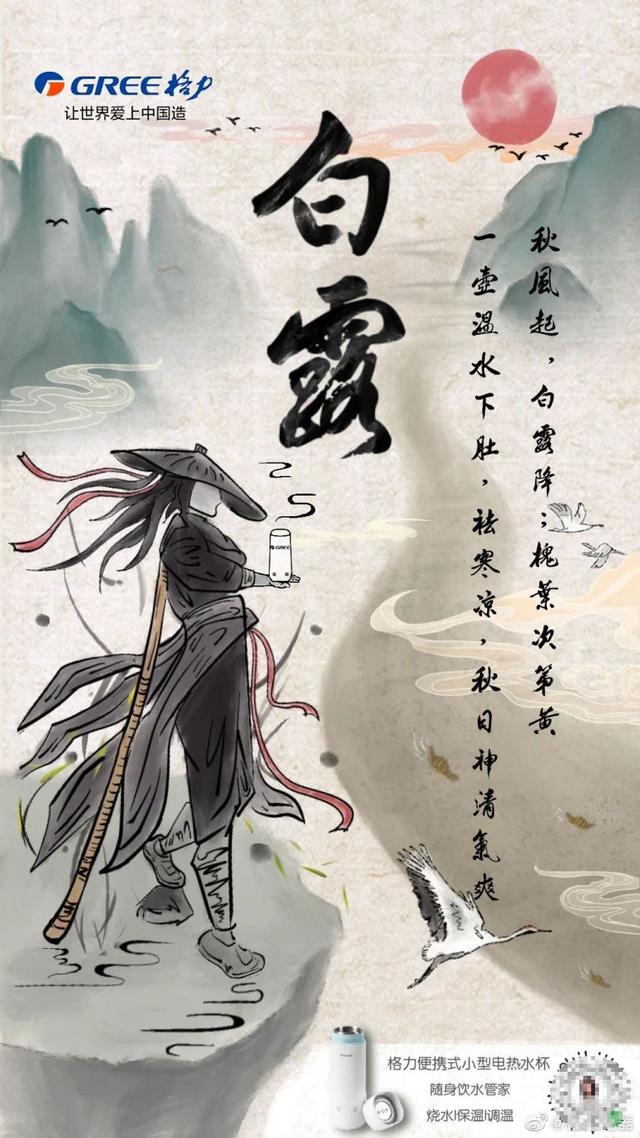 GREE格力
让世界爱上中国造
白露
秋風起，白露降；槐葉次第黄
一壺温水下肚，祛寒凉，秋日神清氣爽
GREE
格力便携式小型电热水杯
随身饮水管家
烧水|保温|调温